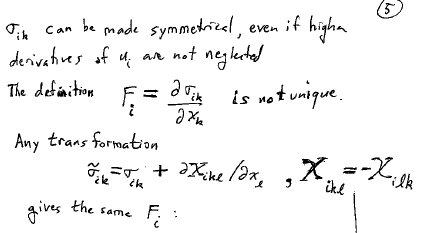 ⑤
σ_ik can be made symmetrical, even if higher
derivatives of u_i are not neglected
The definition F_i = ∂σ_ik/∂x_k is not unique.
Any transformation
σ̃_ik = σ_ik + ∂χ_ikl/∂x_l , χ_ikl = -χ_ilk
gives the same F_i :